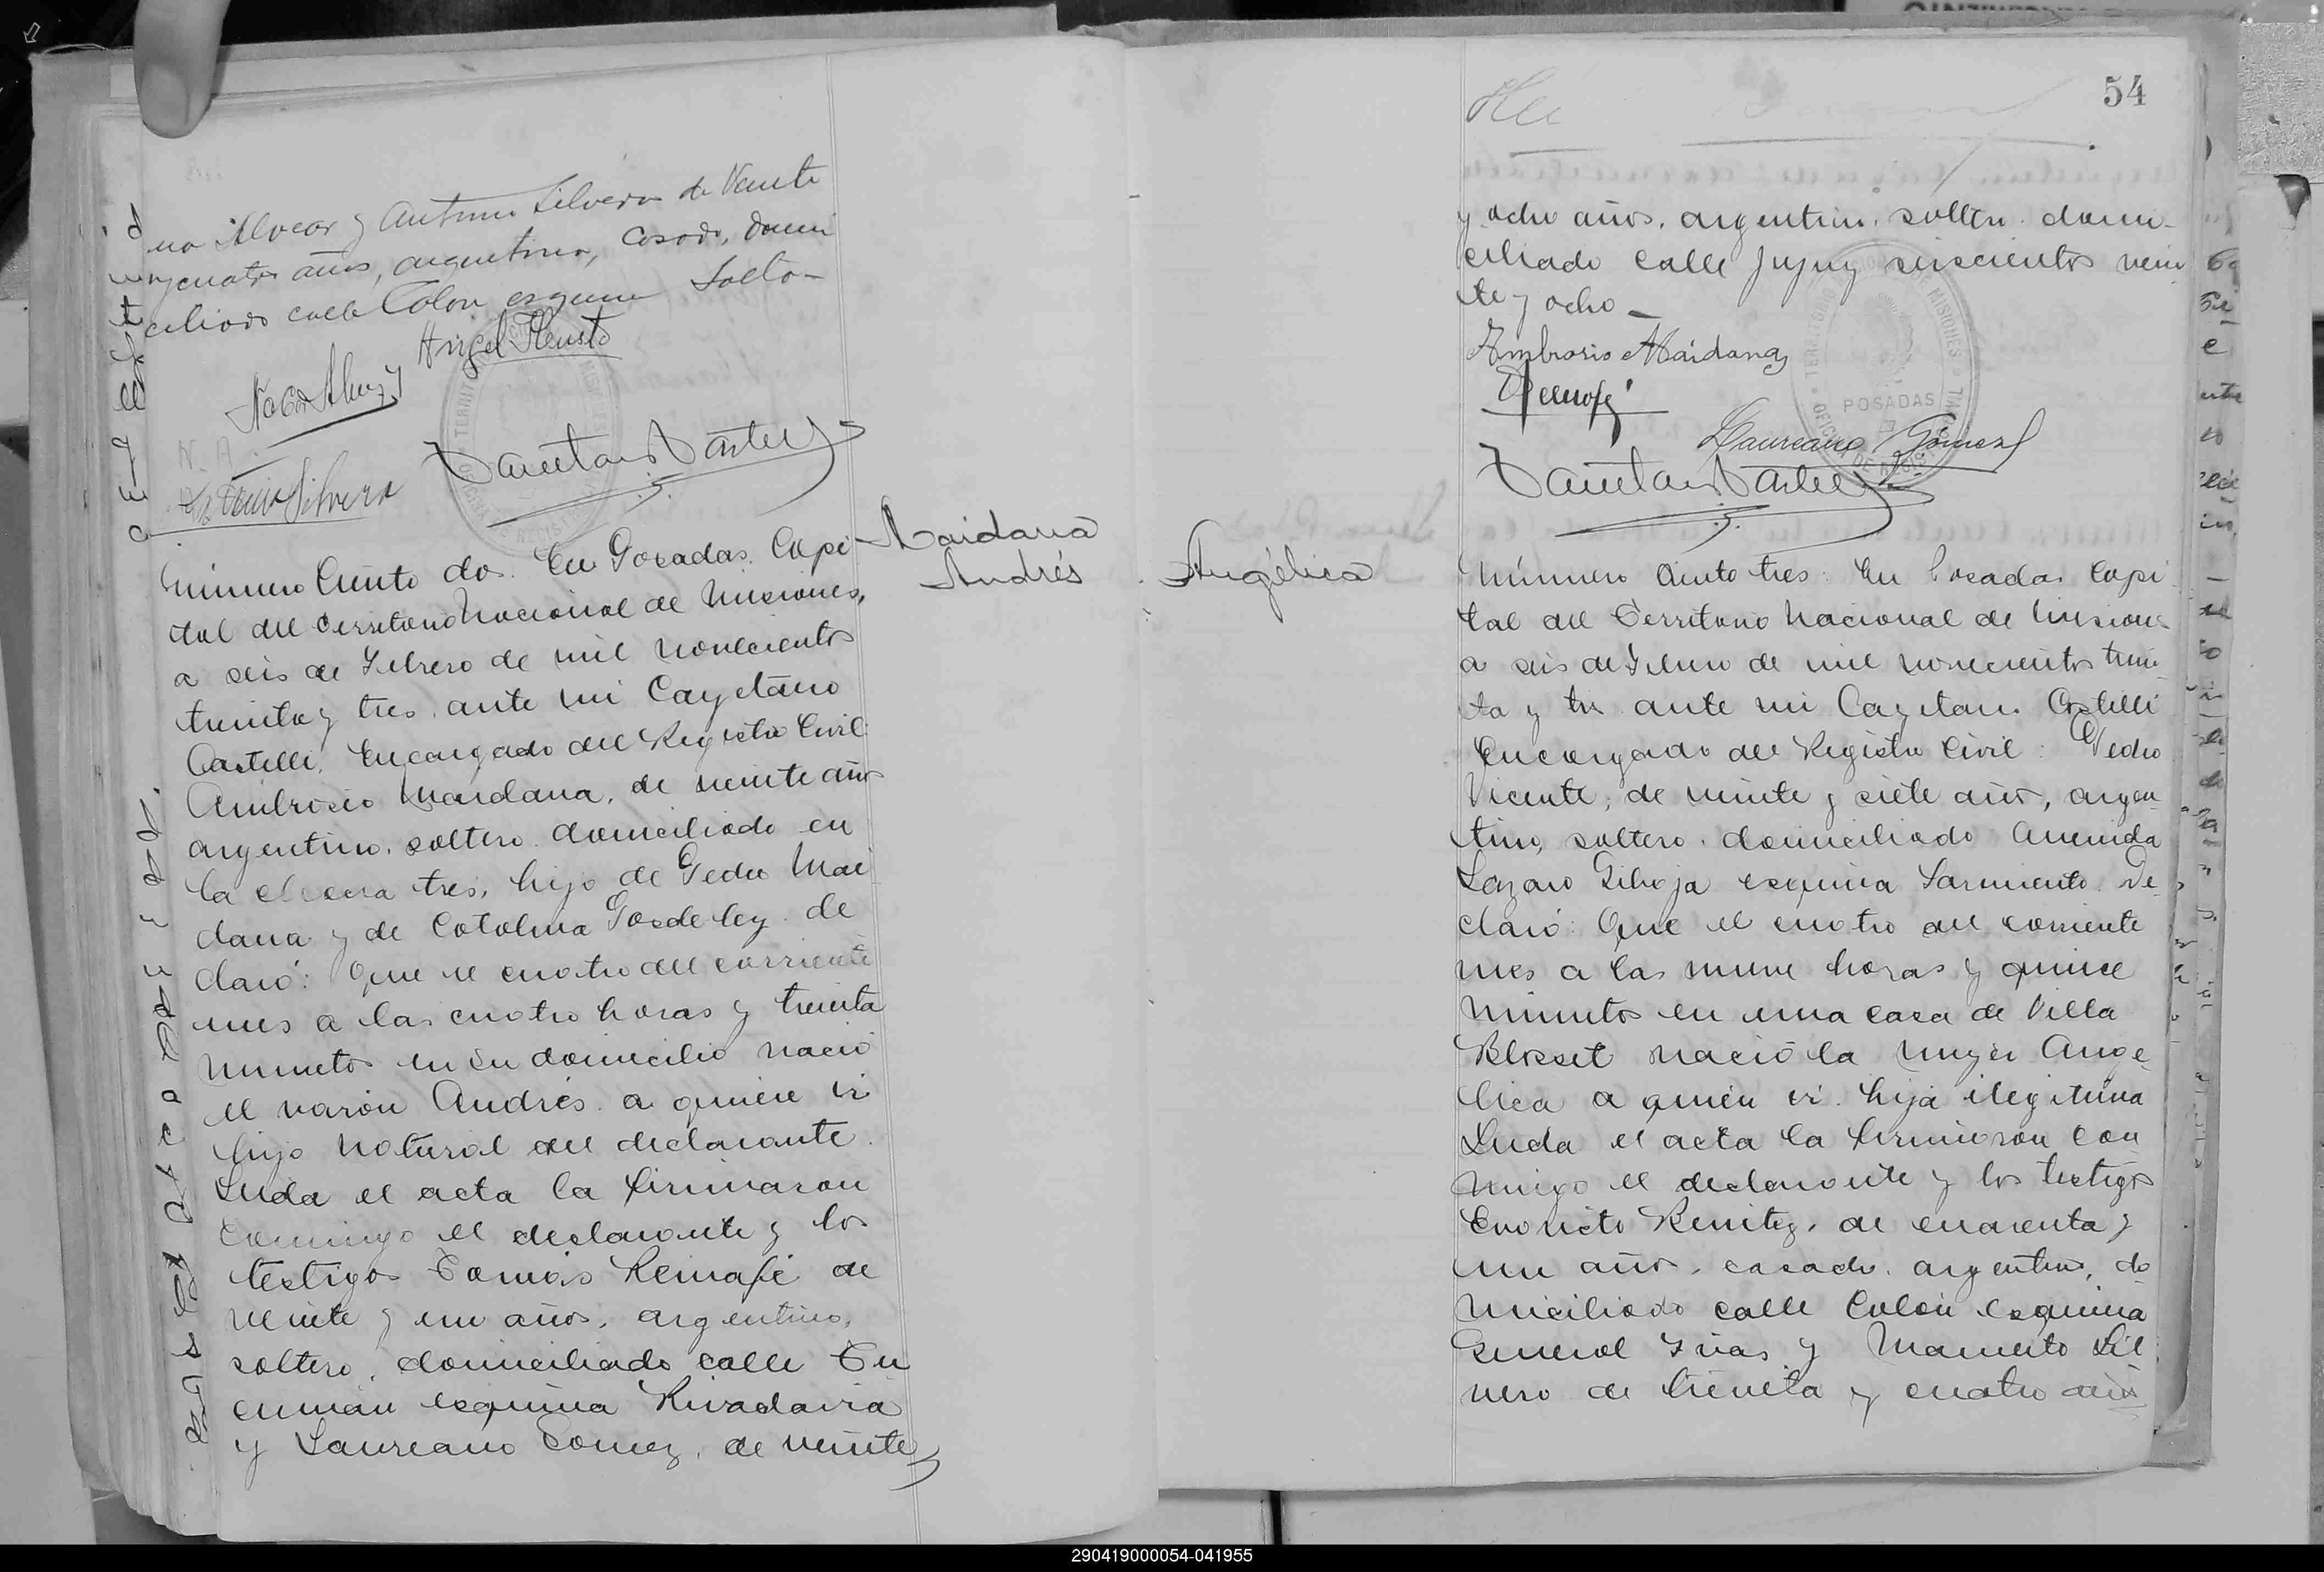 na Alvear y Antonio Silvero de veinte
y cuatro años, argentino, casado, domi
ciliado calle Colon esquina Salta-
Angel
Antonio Silvero
Maidana
Andrés
Número Ciento dos. En Posadas, Capi
tal del Territorio Nacional de Misiones,
a seis de Febrero de mil novecientos
treinta y tres, ante mi Cayetano
Castelli, Encargado del Registro Civil:
Ambrosio Maidana, de veinte años
argentino, soltero, domiciliado en
la chacra tres, hijo de Pedro Mai
dana y de Catalina de
claró: Que el cuatro del corriente
mes a las cuatro horas y treinta
minutos en su domicilio nació
el varón Andrés a quien vi
hijo natural del declarante.
Leida el acta la firmaron
conmigo el declarante y los
testigos Tomás de
veinte y un años, argentino,
soltero, domiciliado calle Tu
cumán esquina Rivadavia
y Laureano Gomez, de veinte
54
y ocho años, argentino, soltero, domi-
ciliado calle Jujuy seiscientos vein
te y ocho_
Ambrosio Maidana
Laureano Gómez
POSADAS
Angélica
Número Ciento tres: En Posadas Capi
tal del Territorio Nacional de Misiones
a seis de Febrero de mil novecientos trein
ta y tres ante mi Cayetano Castelli
Encargado del Registro Civil: Pedro
Vicente, de veinte y siete años, argen
tino, soltero, domiciliado Avenida
Lazaro Gibaja esquina Sarmiento. De
claró: Que el cuatro del corriente
mes a las nueve horas y quince
minutos en una casa de Villa
Blosset nació la mujer Ange
lica a quien vi. hija ilegitima
Leida el acta la firmaron con
migo el declarante y los testigos
Evaristo Benitez, de cuarenta y
un años, casado, argentino, do
miciliado calle Colón esquina
General Frias y Mamerto Sil
vero de treinta y cuatro años
290419000054-041955